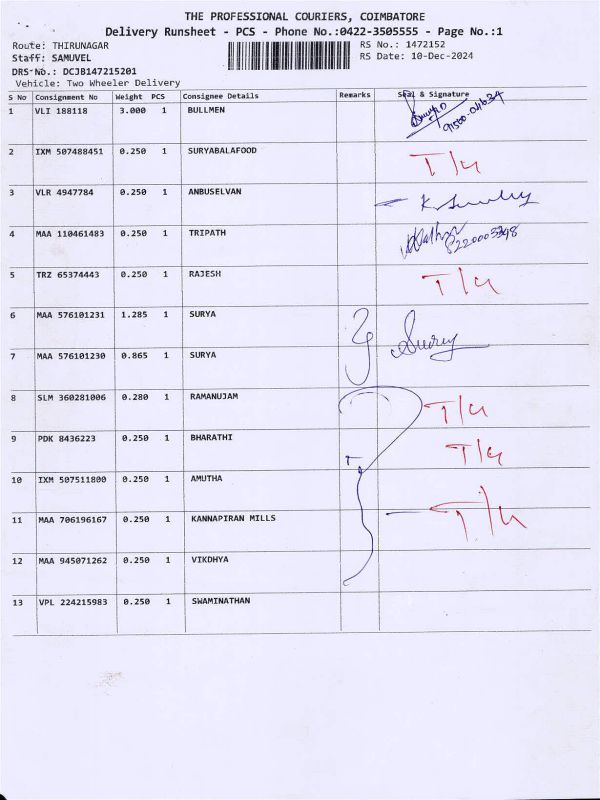 THE PROFESSIONAL COURIERS, COIMBATORE
Delivery Runsheet - PCS - Phone No.:0422-3505555 - Page No.:1
Route: THIRUNAGAR RS No.: 1472152
Staff: SAMUVEL RS Date: 10-Dec-2024
DRS-No.: DCJB147215201
Vehicle: Two Wheeler Delivery
S No Consignment No Weight PCS Consignee Details Remarks Seal & Signature
1 VLI 188118 3.000 1 BULLMEN
2 IXM 507488451 0.250 1 SURYABALAFOOD T/4
3 VLR 4947784 0.250 1 ANBUSELVAN K.
4 MAA 110461483 0.250 1 TRIPATH
5 TRZ 65374443 0.250 1 RAJESH T/4
6 MAA 576101231 1.285 1 SURYA
7 MAA 576101230 0.865 1 SURYA
8 SLM 360281006 0.280 1 RAMANUJAM T/4
9 PDK 8436223 0.250 1 BHARATHI T/4
10 IXM 507511800 0.250 1 AMUTHA
11 MAA 706196167 0.250 1 KANNAPIRAN MILLS T/4
12 MAA 945071262 0.250 1 VIKDHYA
13 VPL 224215983 0.250 1 SWAMINATHAN